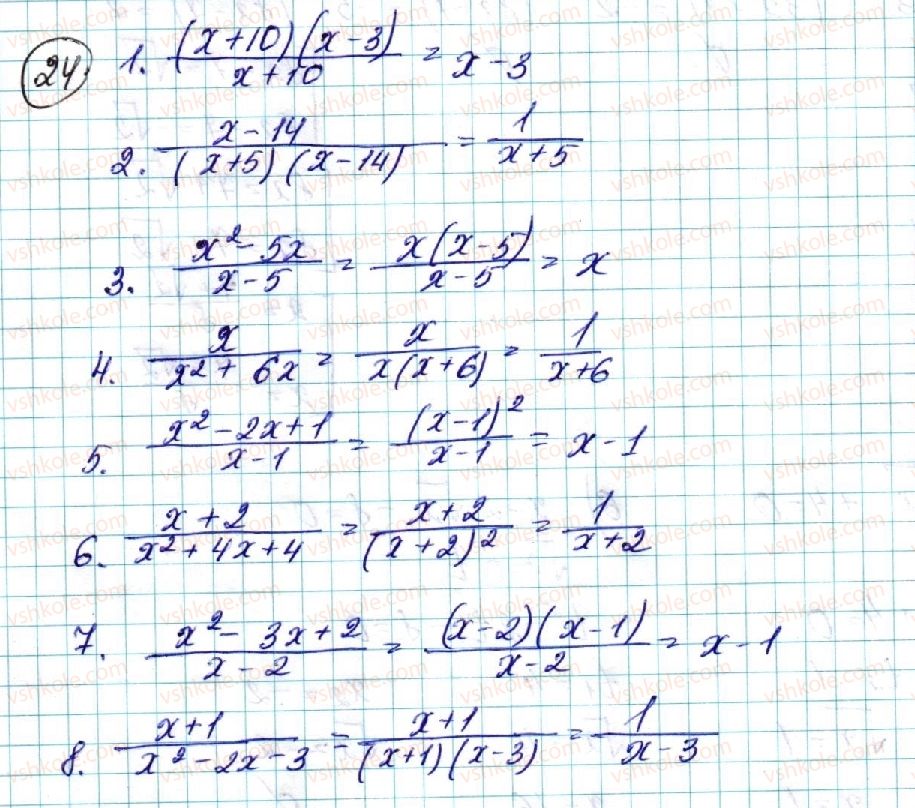 24
1. (x+10)(x-3)/x+10 = x-3
2. x-14/(x+5)(x-14) = 1/x+5
3. x²-5x/x-5 = x(x-5)/x-5 = x
4. x/x²+6x = x/x(x+6) = 1/x+6
5. x²-2x+1/x-1 = (x-1)²/x-1 = x-1
6. x+2/x²+4x+4 = x+2/(x+2)² = 1/x+2
7. x²-3x+2/x-2 = (x-2)(x-1)/x-2 = x-1
8. x+1/x²-2x-3 = x+1/(x+1)(x-3) = 1/x-3
vshkole.com